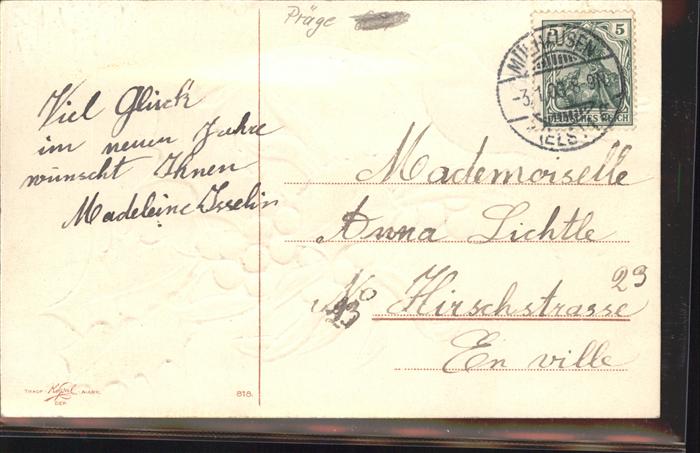 Präge
Viel Glück
im neuen Jahre
wünscht Ihnen
Madeleine Isselin
5
MÜLHAUSEN
DEUTSCHES REICH
Mademoiselle
Anna Lichtle
No Hirschstrasse 23
23
En ville
818.